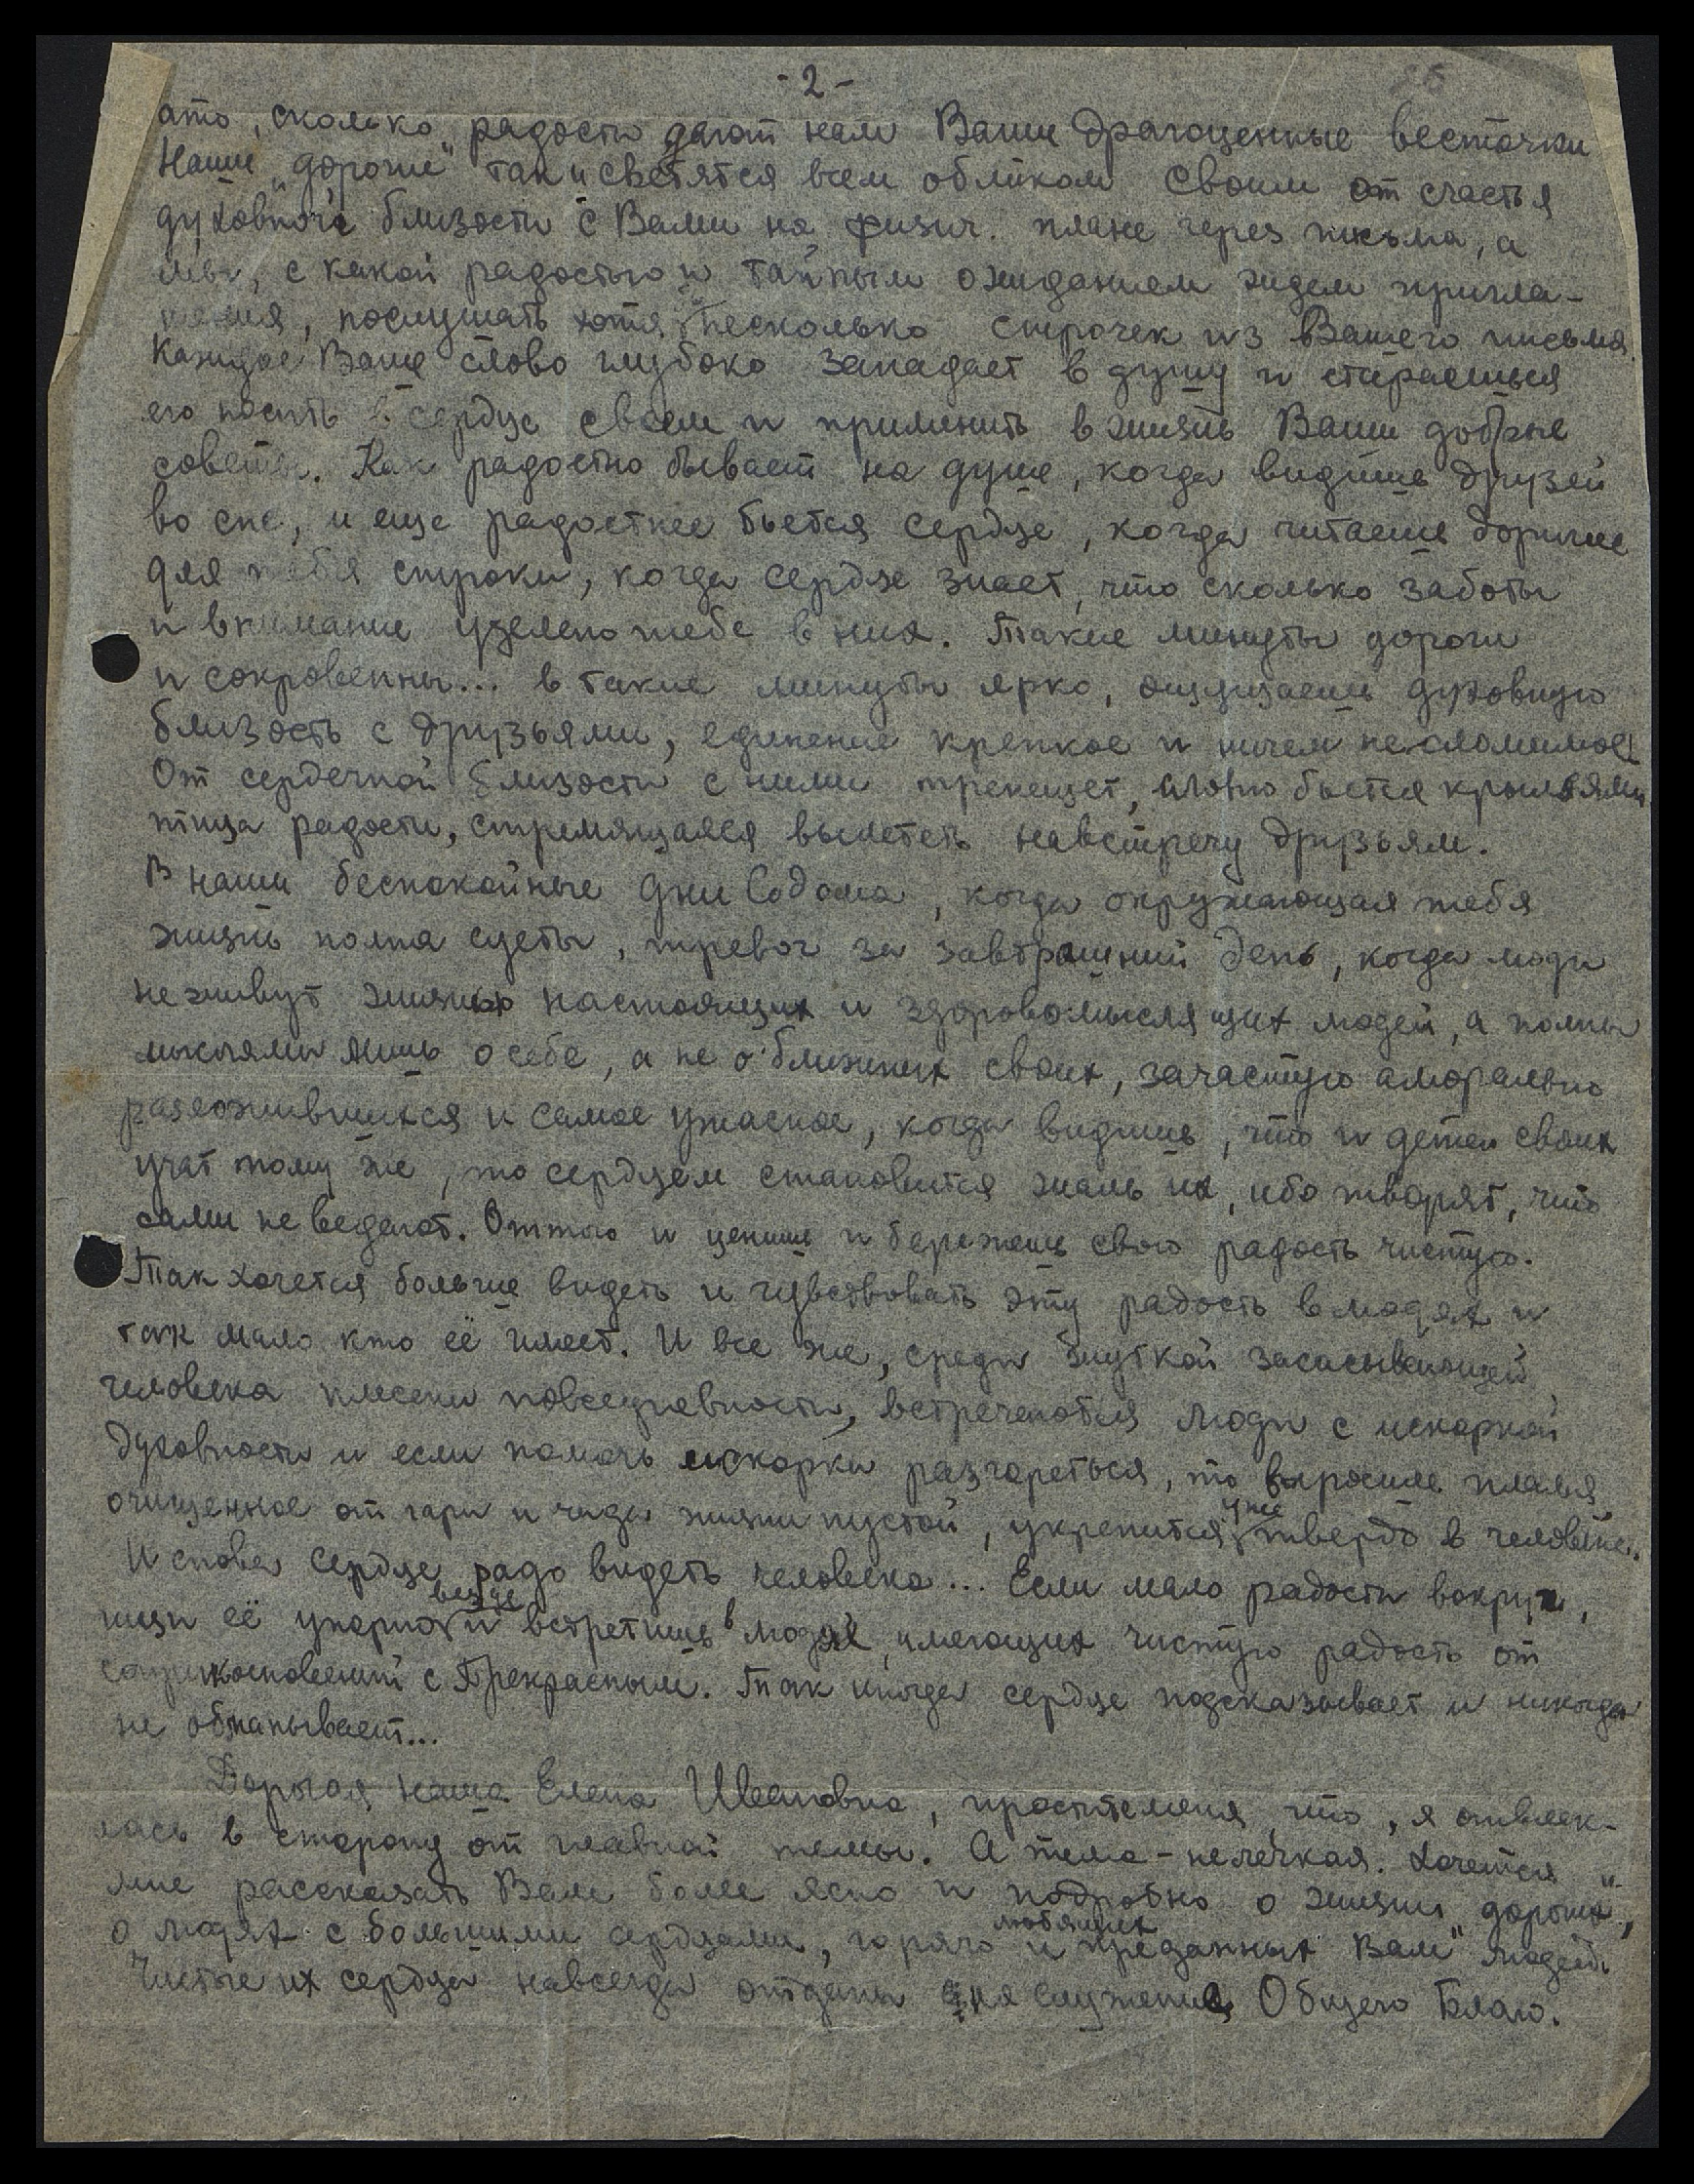 - 2 -
что, сколько радости дают нам Ваши драгоценные весточки
Наши "дорогие" так и светятся всем обликом своим от счастья
духовной близости с Вами на физич. плане через письма, а
мы, с какой радостью и тайным ожиданием ждем пригла-
шения, послушать хотя несколько строчек из Вашего письма.
Каждое Ваше слово глубоко западает в душу и стараешься
его носить в сердце своем и применить в жизнь Ваши добрые
советы. Как радостно бывает на душе, когда видишь друзей
во сне, и еще радостнее бьется сердце, когда читаешь дорогие
для тебя строки, когда сердце знает, что сколько заботы
и внимание уделено тебе в них. Такие минуты дороги
и сокровенны... в такие минуты ярко, ощущаешь духовную
близость с друзьями, единение крепкое и ничем не сломимое!
От сердечной близости с ними трепещет, словно бьется крыльями
птица радости, стремящаяся вылететь навстречу друзьям.
В наши беспокойные дни Содома, когда окружающая тебя
жизнь полна суеты, тревог за завтрашний день, когда люди
не живут жизнью настоящих и здоровомыслящих людей, а полны
мыслями лишь о себе, а не о ближних своих, зачастую аморально
разложившихся и самое ужасное, когда видишь, что и детей своих
учат тому же, то сердцем становится жаль их, ибо творят, что
сами не ведают. Оттого и ценишь и бережешь свою радость чистую.
Так хочется больше видеть и чувствовать эту радость в людях и
так мало кто её имеет. И все же, среди жуткой засасывающей
человека плесени повседневности, встречаются люди с искоркой
духовности и если помочь искорки разгореться, то выросшее пламя,
очищенное от гари и чада жизни пустой, укрепится уже твердо в человеке.
И снова сердце радо видеть человека... Если мало радости вокруг,
ищи её упорно и везде встретишь в людях, имеющих чистую радость от
соприкосновений с Прекрасным. Так иногда сердце подсказывает и никогда
не обманывает...
Дорогая наша Елена Ивановна, простите меня, что, я отвлек-
лась в сторону от главной темы. А тема - нелегкая. Хочется
мне рассказать Вам более ясно и подробно о жизни "дорогих",
о людях с большими сердцами, горячо любящих и преданных Вам людей.
Чистые их сердца навсегда отданы для служения Общего Благо.